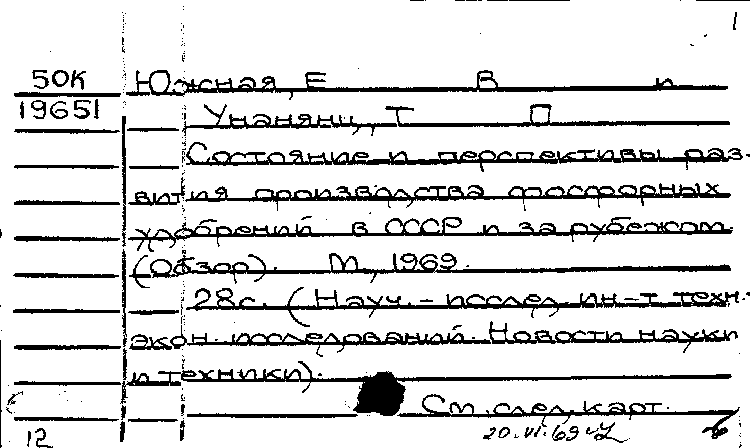 1
50К Южная, Е В и
19651 Унанянц, Т П
Состояние и перспективы раз-
вития производства фосфорных
удобрений в СССР и за рубежом.
(Обзор). М., 1969.
28с. (Науч.-исслед. ин-т техн.-
экон. исследований. Новости науки
и техники).
См. след. карт.
12 20.VI.69